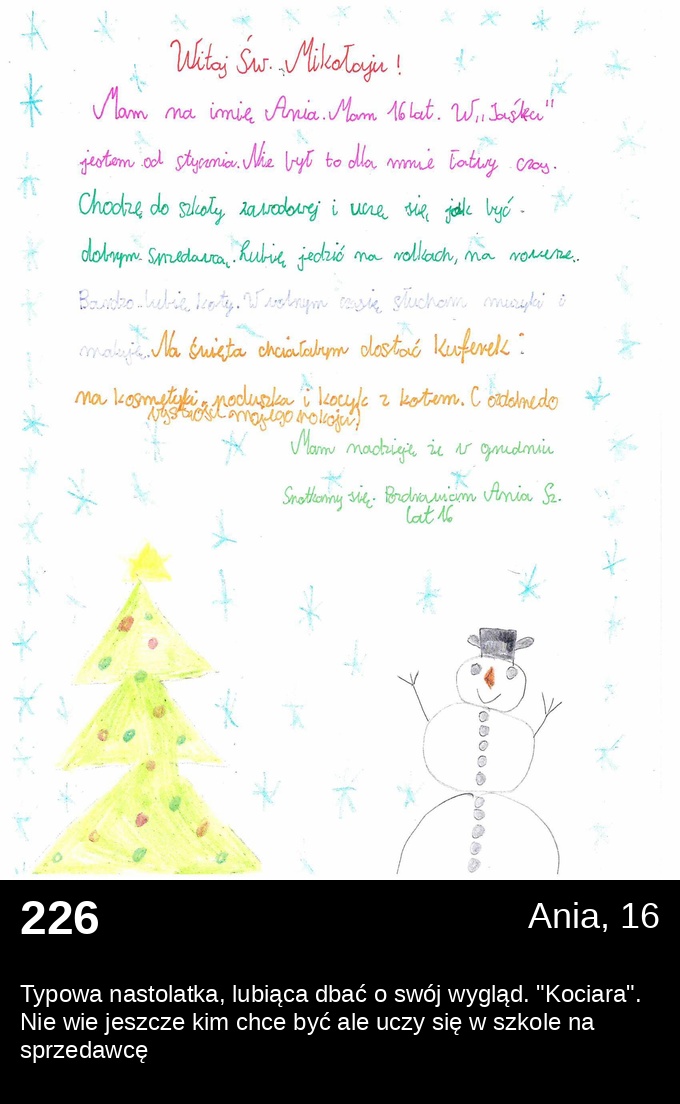 Witaj Św. Mikołaju !
Mam na imię Ania. Mam 16 lat. W ,,Jaśku"
jestem od stycznia. Nie był to dla mnie łatwy czas.
Chodzę do szkoły zawodowej i uczę się jak być
dobrym sprzedawcą. Lubię jeździć na rolkach, na rowerze.
Bardzo lubię koty. W wolnym czasie słucham muzyki i
maluję. Na święta chciałabym dostać kuferek
na kosmetyki, poduszka i kocyk z kotem. (
mojego pokoju)
Mam nadzieję że w grudniu
Spotkamy się. Pozdrawiam Ania Sz.
lat 16
226
Ania, 16
Typowa nastolatka, lubiąca dbać o swój wygląd. "Kociara".
Nie wie jeszcze kim chce być ale uczy się w szkole na
sprzedawcę